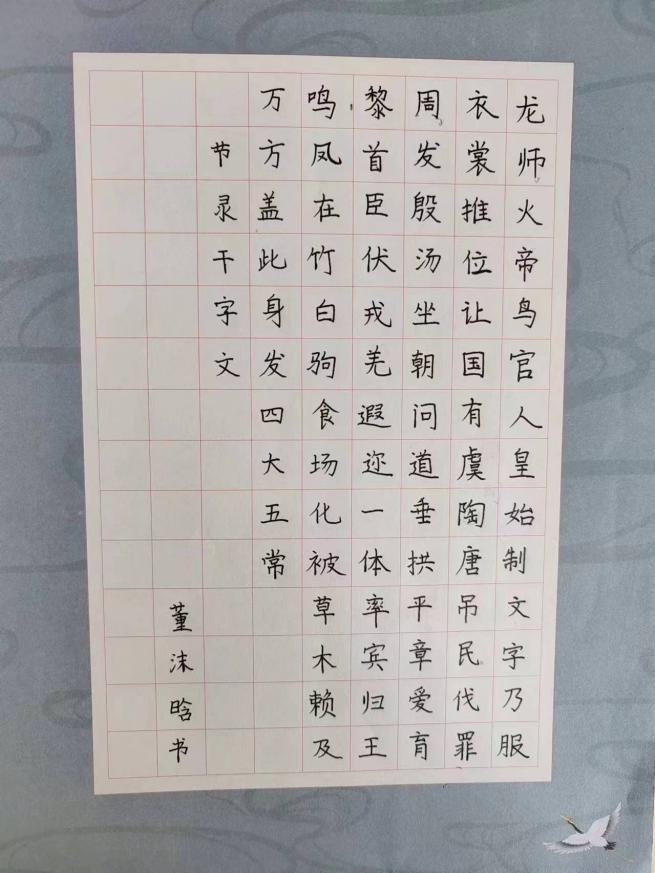 龙师火帝鸟官人皇始制文字乃服
衣裳推位让国有虞陶唐吊民伐罪
周发殷汤坐朝问道垂拱平章爱育
黎首臣伏戎羌遐迩一体率宾归王
鸣凤在竹白驹食场化被草木赖及
万方盖此身发四大五常
节录千字文
董沫晗书